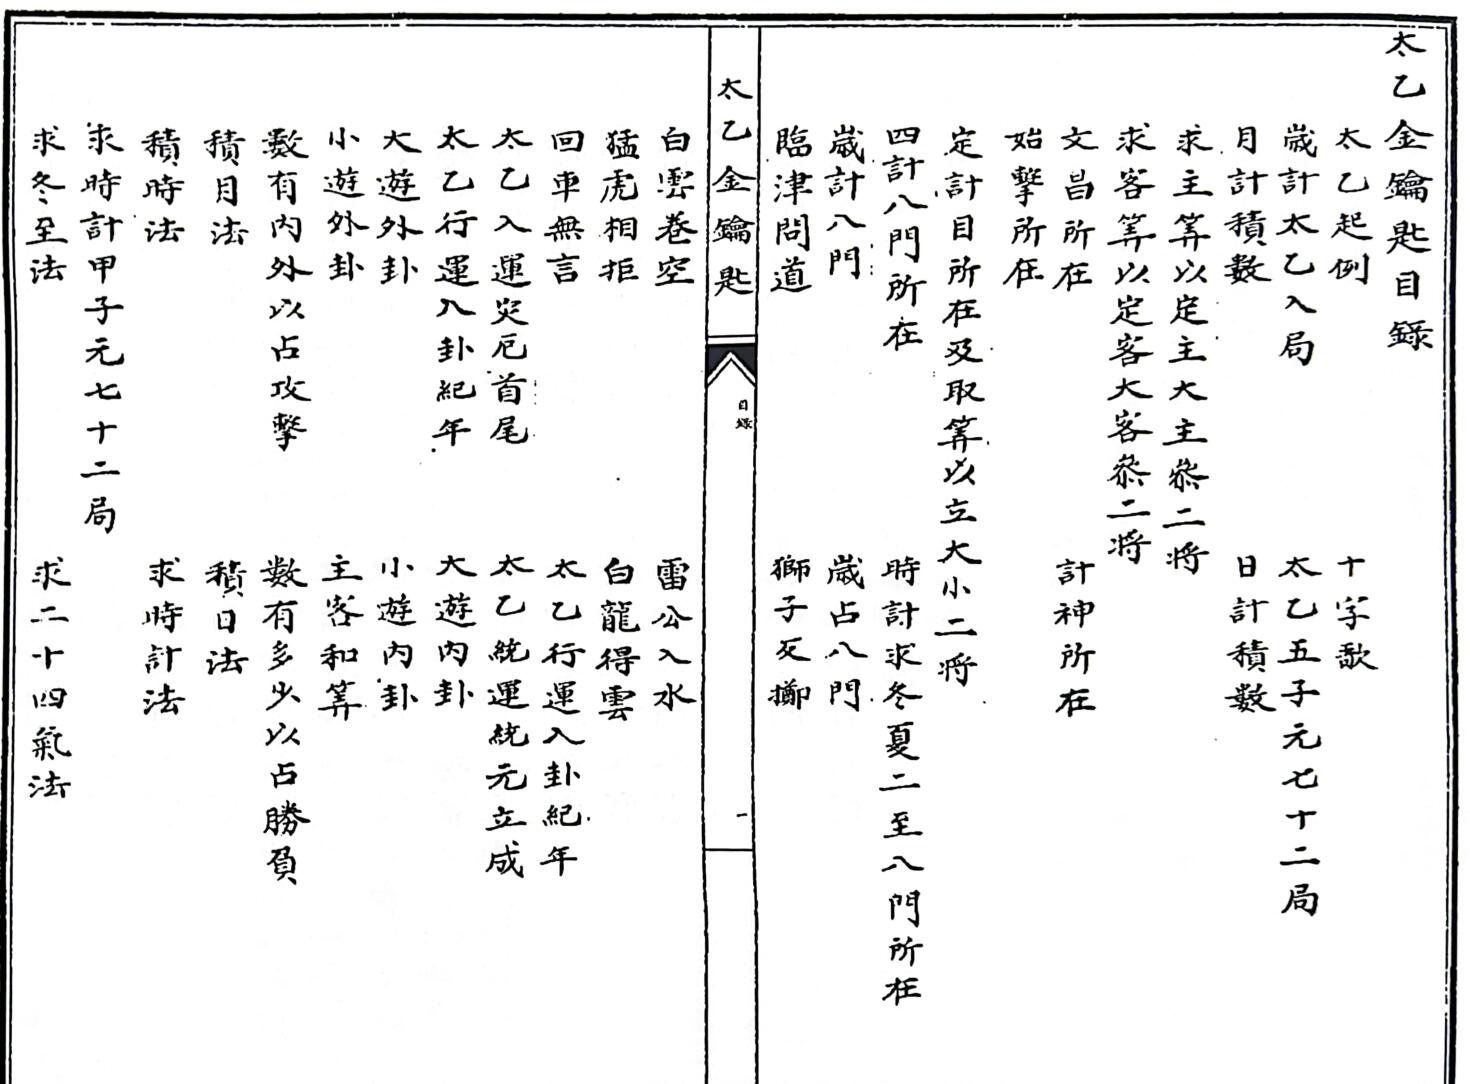 太乙金鑰匙目錄
太乙起例　十字歌
歲計太乙入局　太乙五子元七十二局
月計積數　日計積數
求主筭以定主大主叅二將
求客筭以定客大客叅二將
文昌所在　計神所在
始擊所在
定計目所在及取筭以立大小二將
四計八門所在　時計求冬夏二至八門所在
歲計八門　歲占八門
臨津問道　獅子反擲
太乙金鑰匙
目錄
一
白雲卷空　雷公入水
猛虎相拒　白龍得雲
回車無言　太乙行運入卦紀年
太乙入運災厄首尾　太乙統運統元立成
太乙行運入卦紀年　大遊內卦
大遊外卦　小遊內卦
小遊外卦　主客和筭
數有內外以占攻擊　數有多少以占勝負
積月法　積日法
積時法　求時計法
求時計甲子元七十二局
求冬至法　求二十四氣法